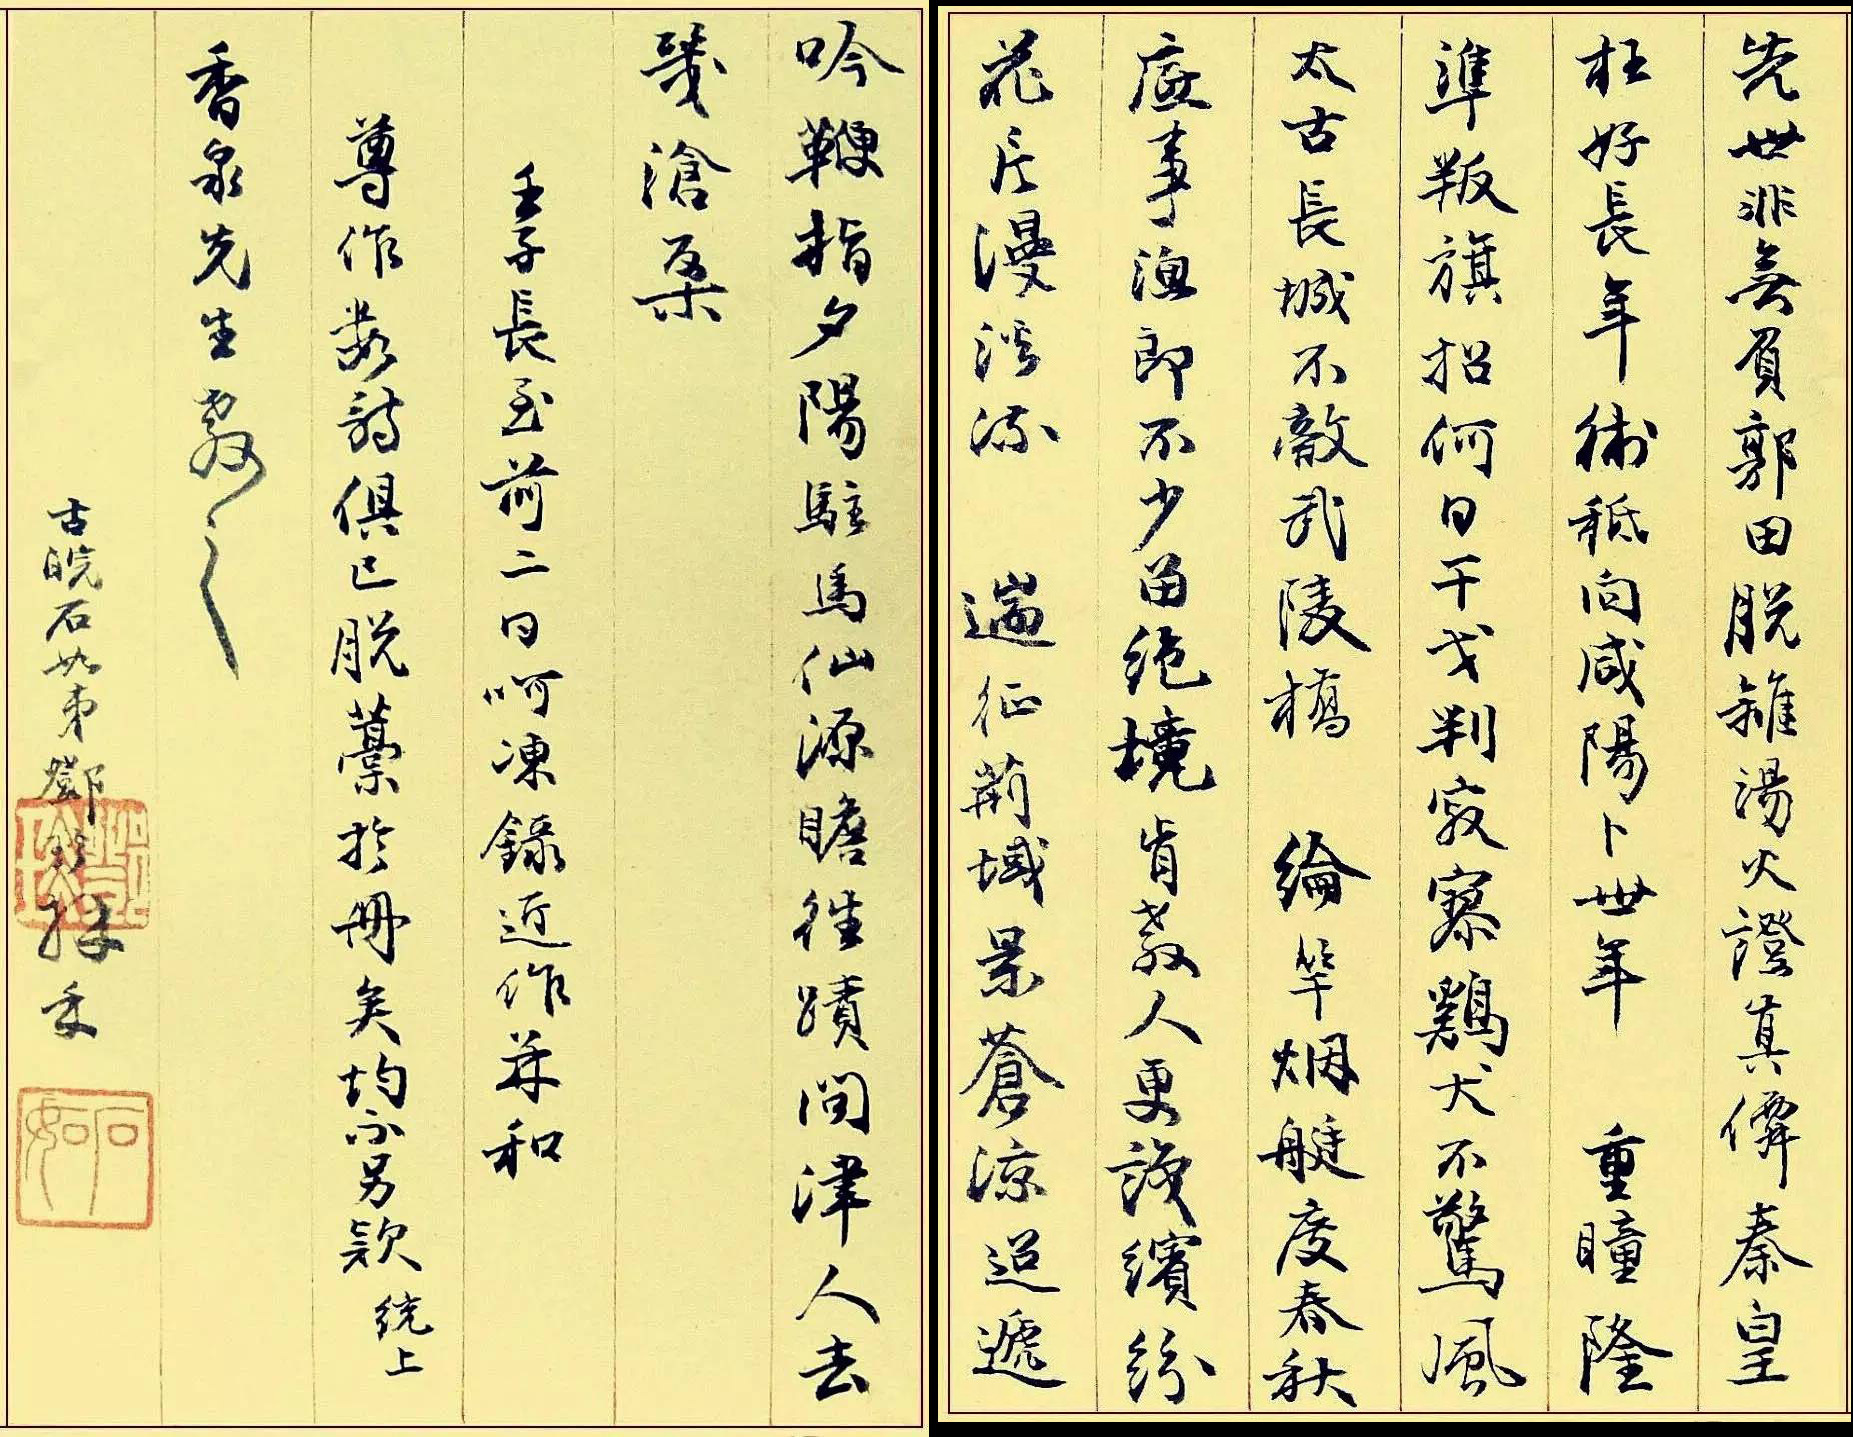 先世非無負郭田脱離湯火證真僊秦皇
枉好長年術秖向咸陽卜世年 重瞳隆
準叛旗招何日干戈判寂寥鷄犬不驚風
太古長城不敵武陵橋 綸竿烟艇度春秋
底事漁郎不少留絶境肯教人更誤繽紛
花片漫隨流 遄征荊域景蒼凉迢遞
吟鞭指夕陽駐馬仙源瞻往蹟問津人去
幾滄桑
壬子長至前二日呵凍録近作并和
尊作數詩俱已脱藁於冊矣均不另款 统上
香泉先生教之
古皖石如弟鄧 
石如